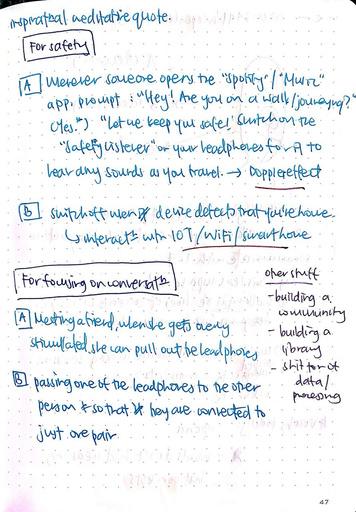 inspirational meditative quote.
For safety
A Whenever someone opens the "Spotify"/"Music"
app, prompt: "Hey! Are you on a walk/journeying?"
(Yes.") "Let me keep you safe!' Switch on the
"Safety listener" on your headphones for it to
hear any sounds as you travel. → Doppler effect
B Switch off when device detects that you're home.
↳ interacts with IOT/WiFi/smarthome
For focusing on conversat
A Meeting a friend, when she gets overly
stimulated, she can pull out the headphones
B passing one of the headphones to the other
person so that they are connected to
just one pair
other stuff
- building a
community
- building a
library
- shit ton of
data/
processing
47